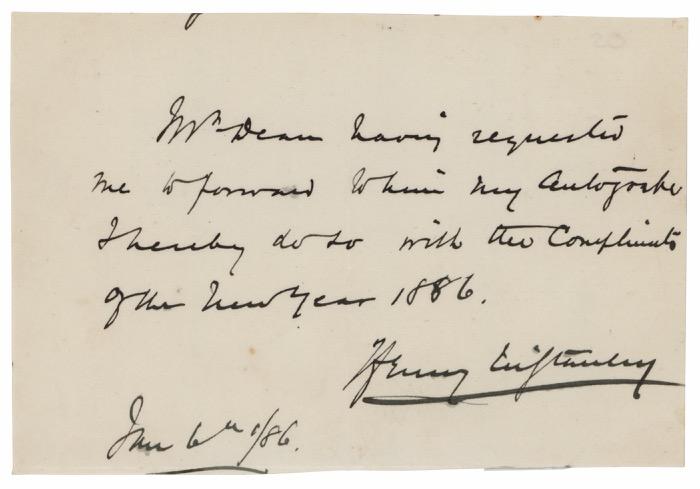 Mr Dean having requested
me to forward to him my Autograph
I hereby do so with the Compliments
of the New Year 1886.
Henry M Stanley
Jan 6th /86.
20